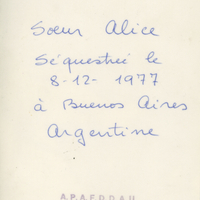 Soeur Alice
Séquestrée le
8-12-1977
à Buenos Aires
Argentine